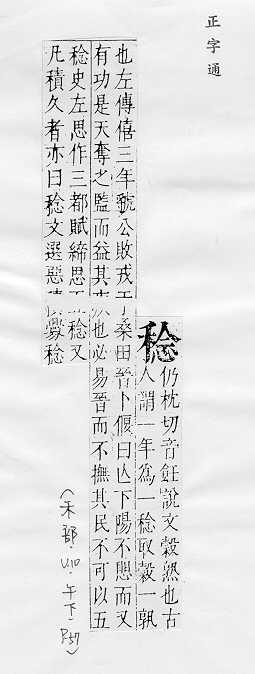 正字通
稔
仍枕切音飪說文穀熟也古
人謂一年為一稔取穀一熟
也左傳僖三年虢公敗戎于桑田晉卜偃曰亾下陽不而又
有功是天奪之監而益其疾也必易晉而不撫其民不可以五
稔史左思作三都賦締思稔又
凡積久者亦曰稔文選惡積釁稔
(禾部.U10.午下.P57)